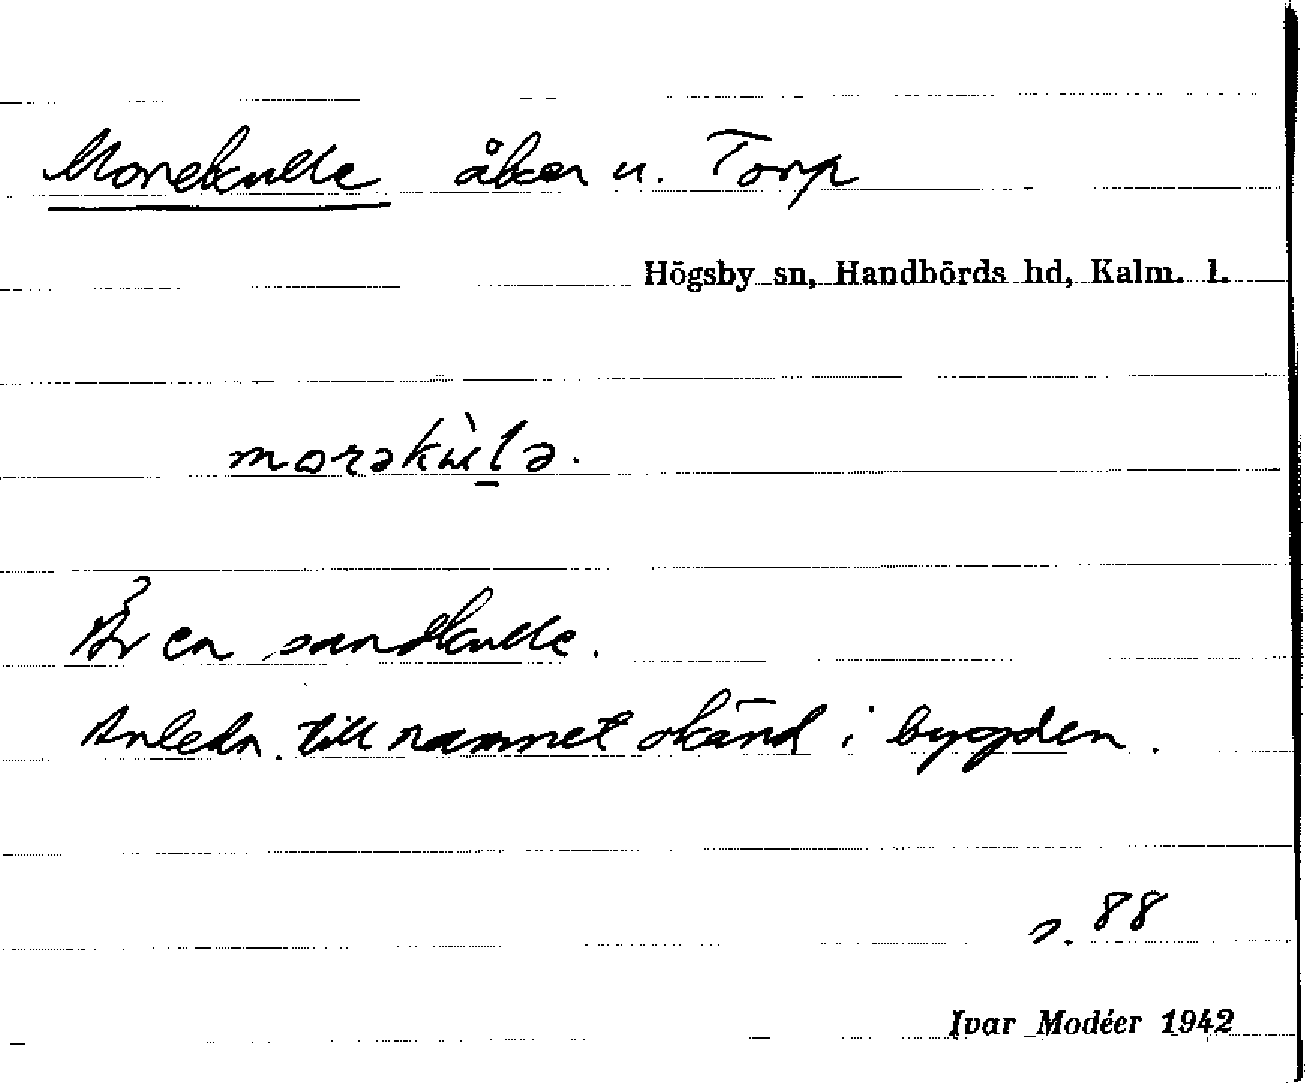 Morekulle åker u. Torp
Högsby sn, Handbörds hd, Kalm. l.
morəkùlə.
Är en sandkulle.
Anledn. till namnet okänd i bygden.
s. 88
Ivar Modéer 1942